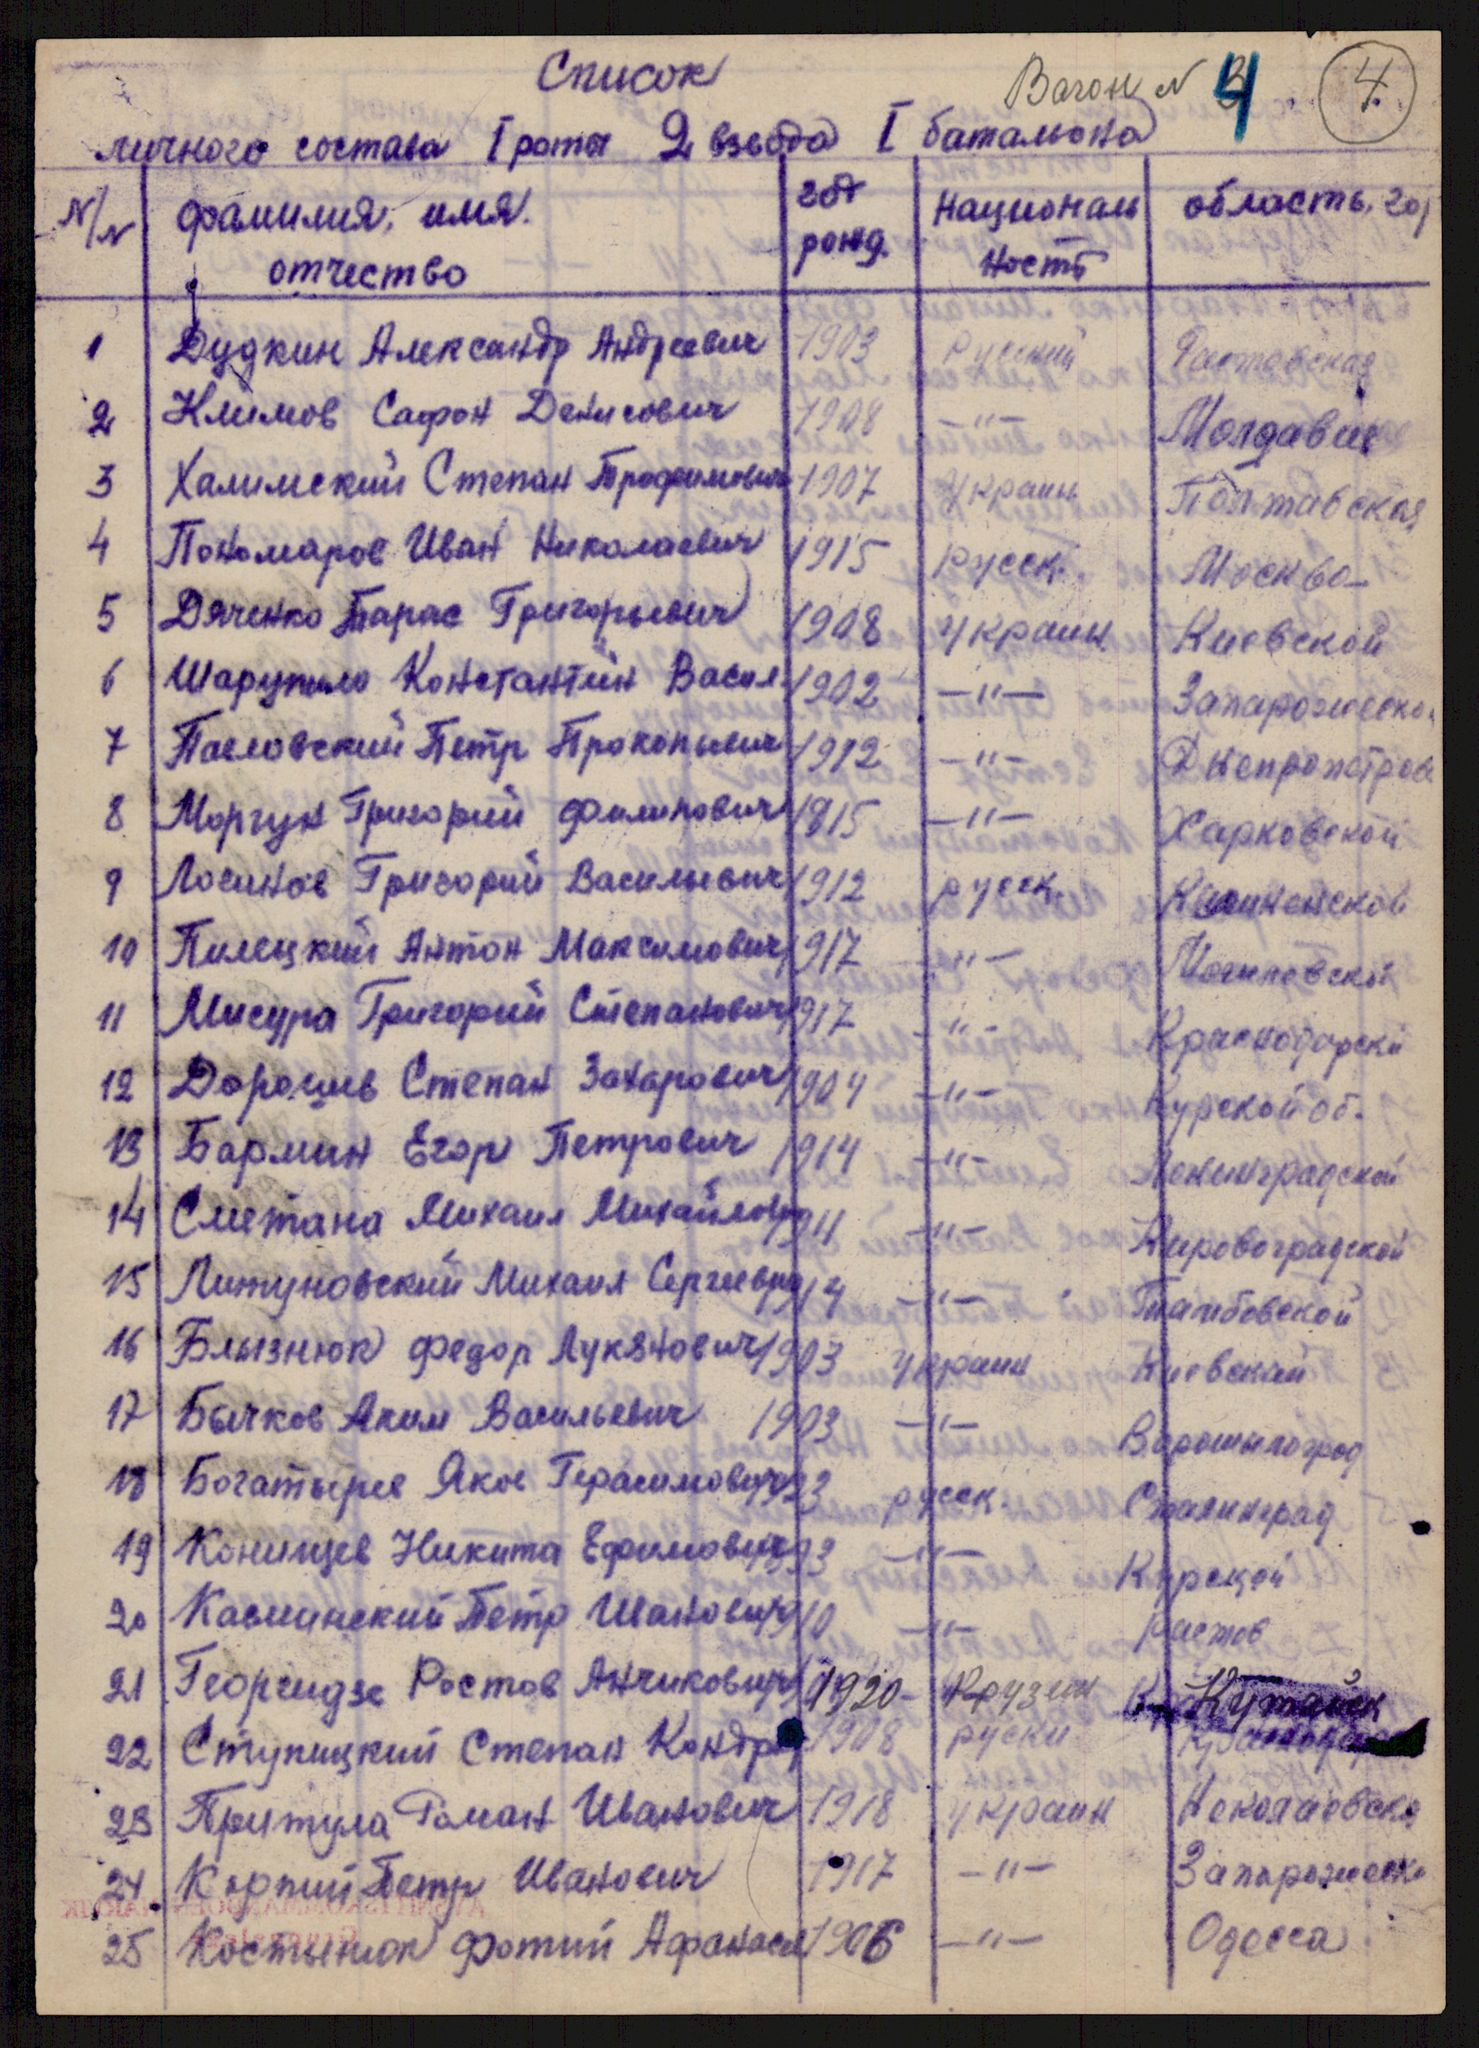 Список
Вагон N 4
4.
личного состава I роты 2 взвода I батальона
N/N фамилия, имя. отчество год рожд. Националь ность область, гор
1 Дудкин Александр Андреевич 1903 Русский Растовская
2 Климов Сафон Денисович 1908 —"— Молдавие
3 Халимский Степан Трофимович 1907 Украин Полтавская
4 Пономаров Иван Николаевич 1915 русск. Москва
5 Дяченко Тарас Григорьевич 1908 украин Киевской
6 Шарупило Константин Васил. 1902 —"— Запарожеско
7 Павловский Петр Прокопьевич 1912 —"— Днепропетров
8 Моргун Григорий Филипович 1915 —"— Харковской
9 Лосинов Григорий Васильевич 1912 русск.
10 Пилецкий Антон Максимович 1917 —"— Могилевской
11 Мисура Григорий Степанович 1917 —"— Краснодарски
12 Дорошев Степан Захарович 1904 —"— Курской об.
13 Бармин Егор Петрович 1914 —"— Ленинградской
14 Сметана Михаил Михайлович 1911 —"— Кировоградской
15 Литуновский Михаил Сергеевич 1914 —"— Тамбовской
16 Блызнюк Федор Лукянович 1903 украин Киевский
17 Бычков Аким Васильевич 1903 —"— Ворошылоград
18 Богатырев Яков Герасимович 1923 русск. Сталинград
19 Конищев Никита Ефимович 1923 —"— Курской
20 Касминский Петр Иванович 1910 —"— Растов
21 Георгидзе Ростов Анчикович 1920 Грузин Кутаиск
22 Ступицкий Степан Кондр 1908 руски Краснодар
23 Притула Роман Иванович 1918 украин Неколаевско
24 Корпий Петр Иванович 1917 —"— Запарожеско
25 Костынюк Фотий Афанасе 1906 —"— Одесса